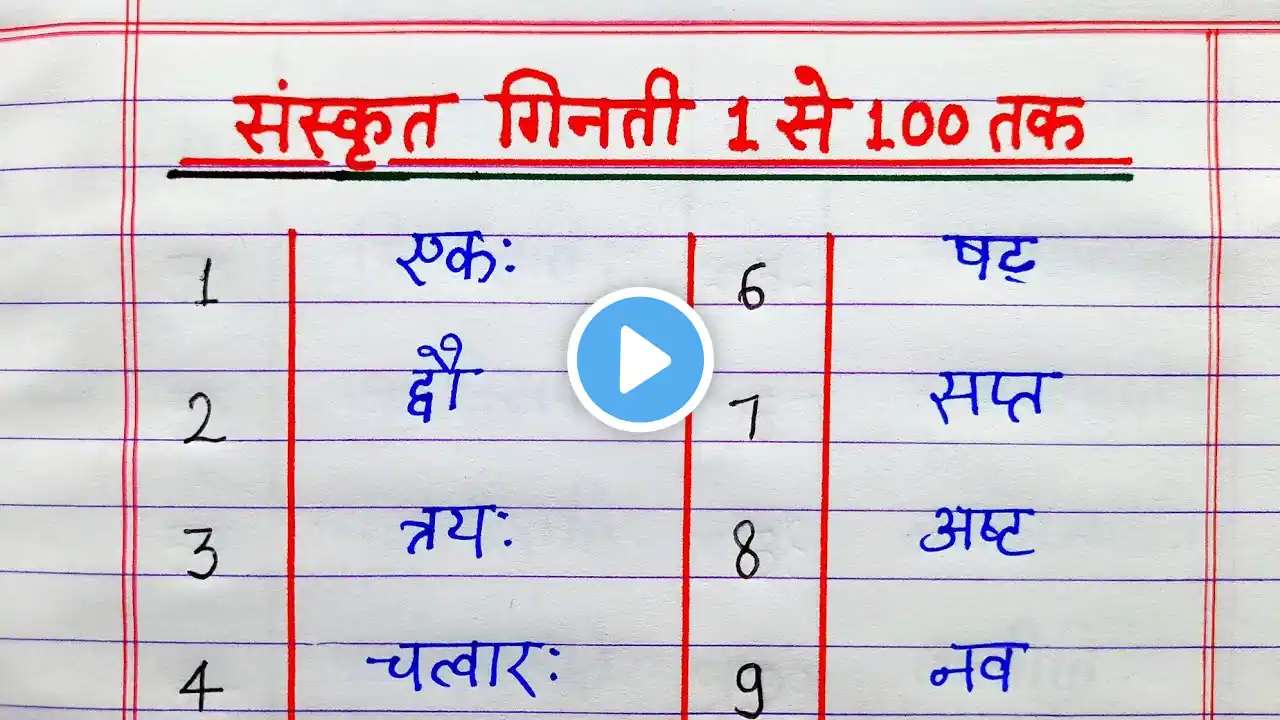 संस्कृत गिनती 1 से 100 तक
1 एक: 6 षट्
2 द्वौ 7 सप्त
3 त्रय: 8 अष्ट
4 चत्वार: 9 नव